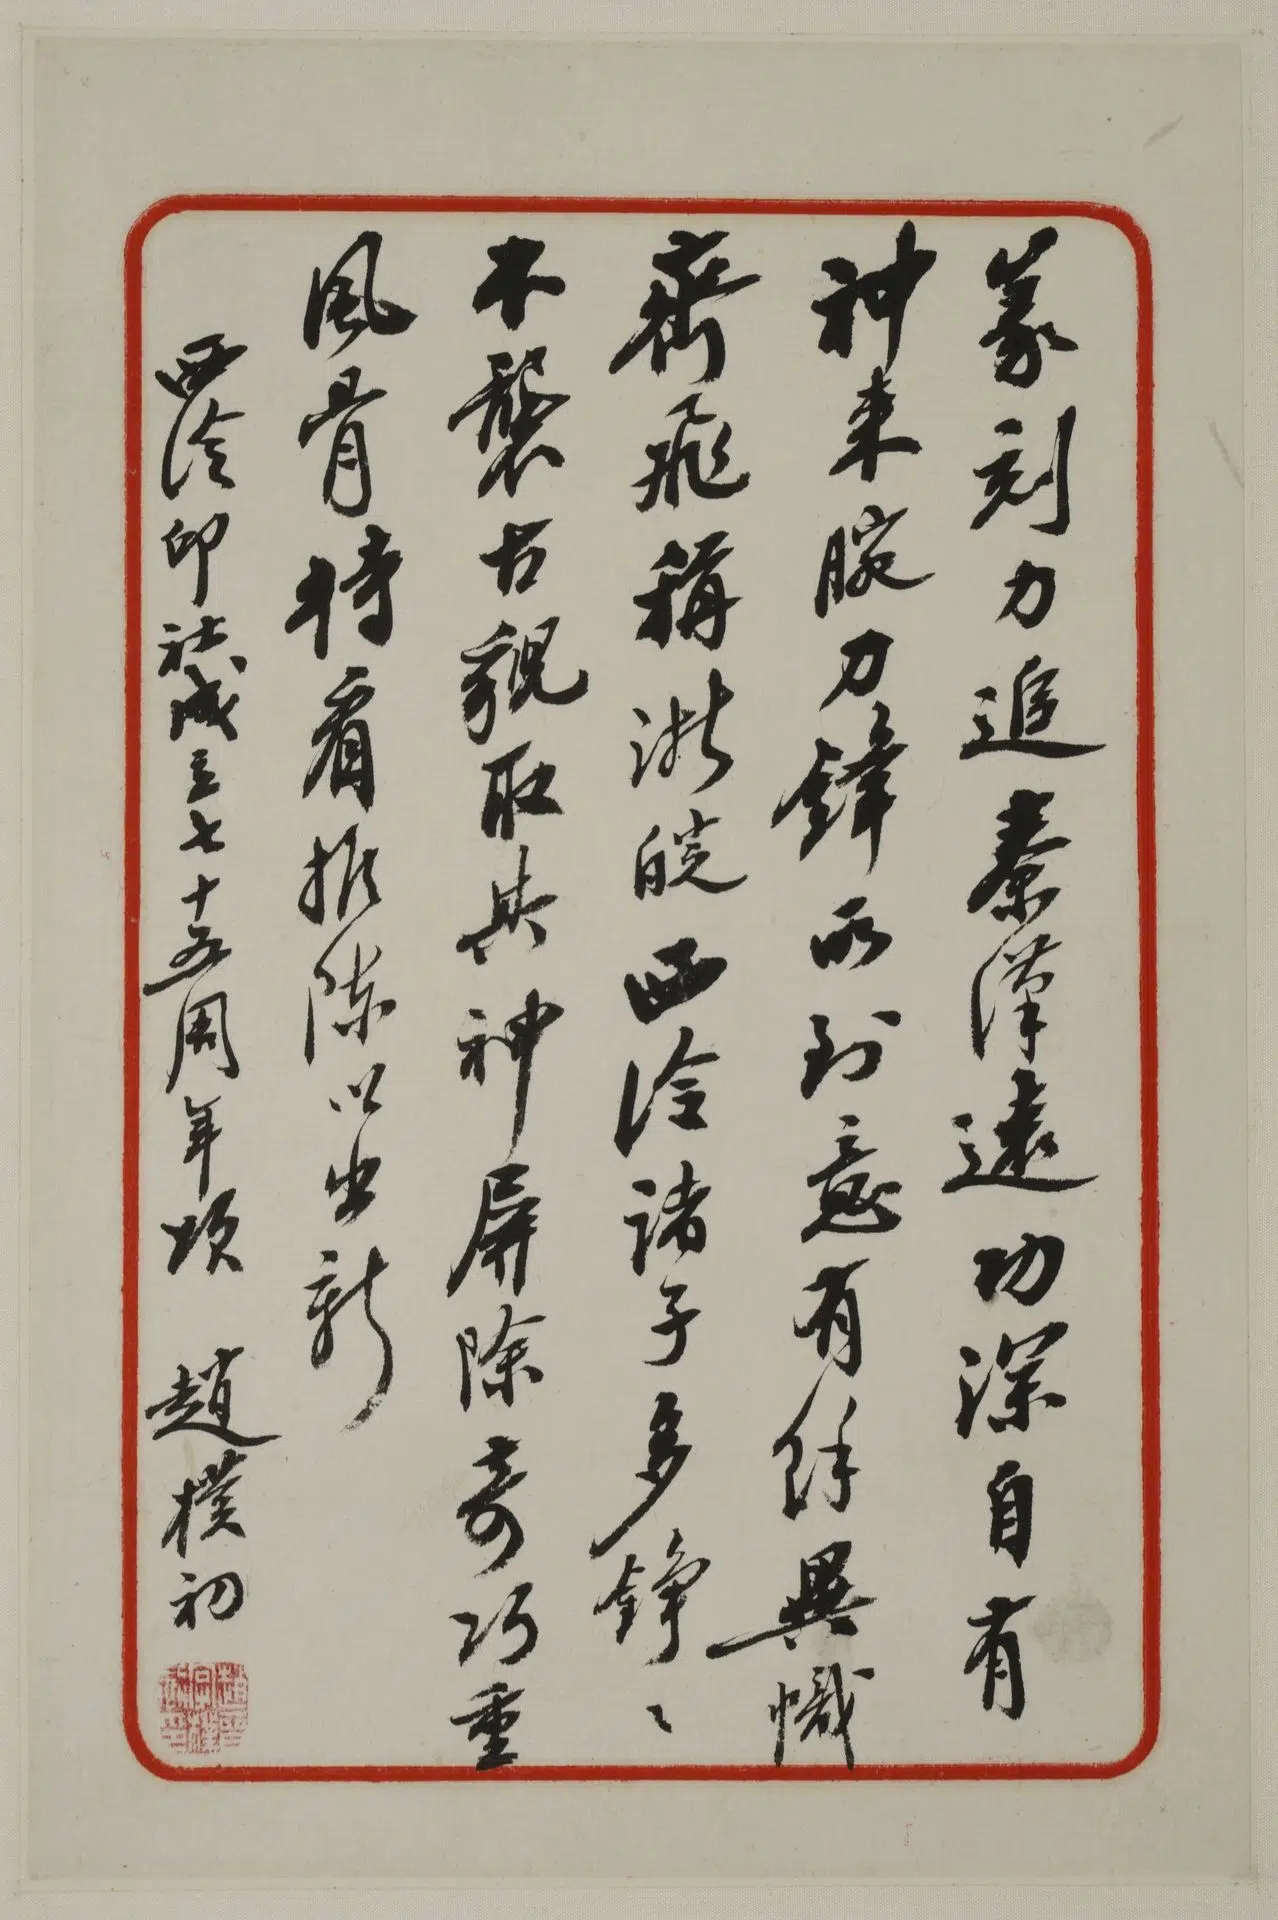 篆刻力追秦漢遠功深自有
神來腕刀鋒所到意有餘異幟
齊飛稱浙皖西泠諸子多錚〻
不襲古貌取其神屏除奇巧重
風骨持看推陳以出新
西泠印社成立七十五周年頌 趙樸初